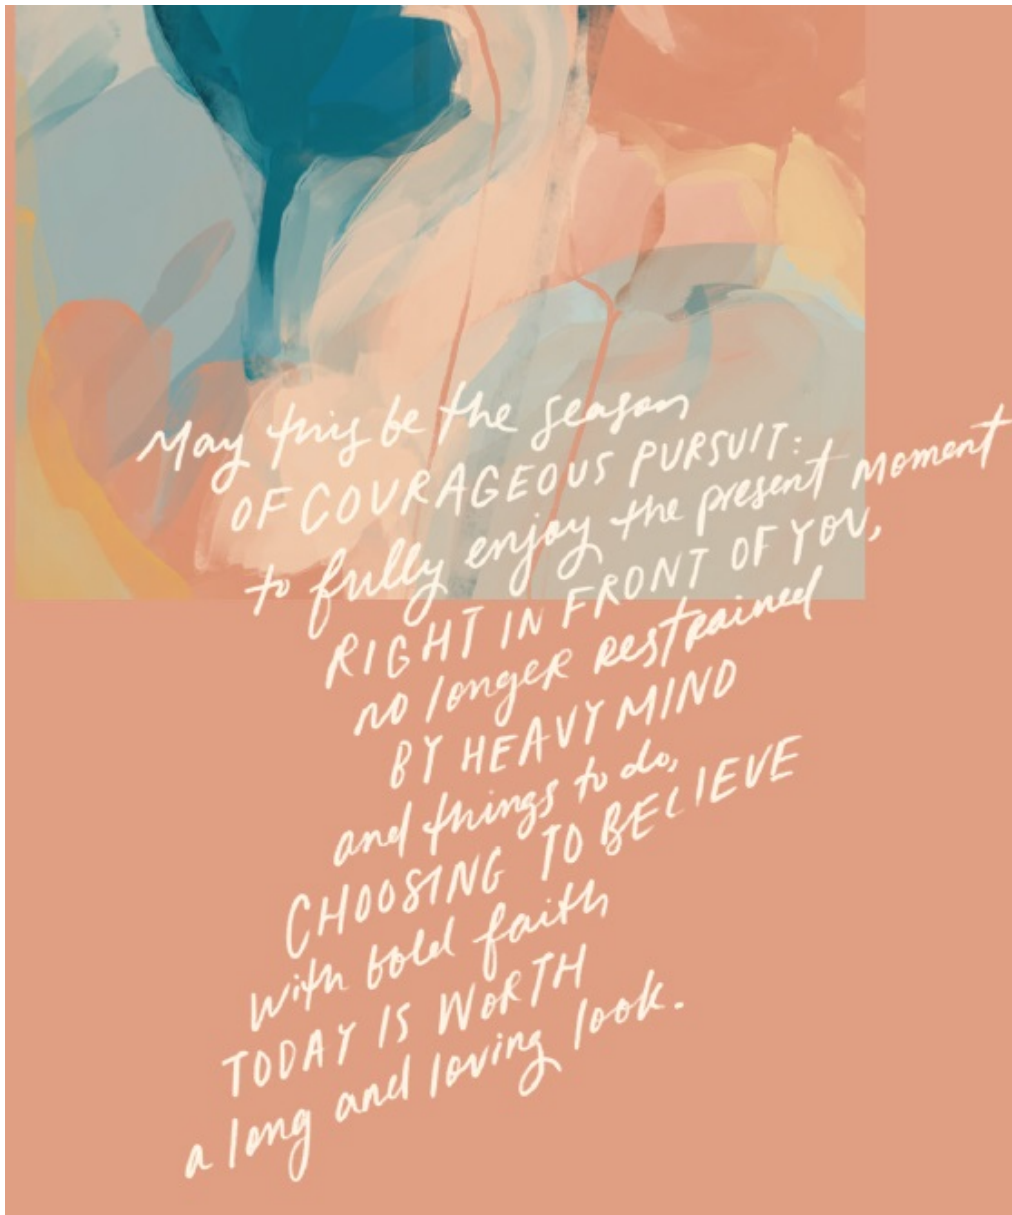 May this be the season
OF COURAGEOUS PURSUIT:
to fully enjoy the present moment
RIGHT IN FRONT OF YOU,
no longer restrained
BY HEAVY MIND
and things to do,
CHOOSING TO BELIEVE
with bold faith
TODAY IS WORTH
a long and loving look.